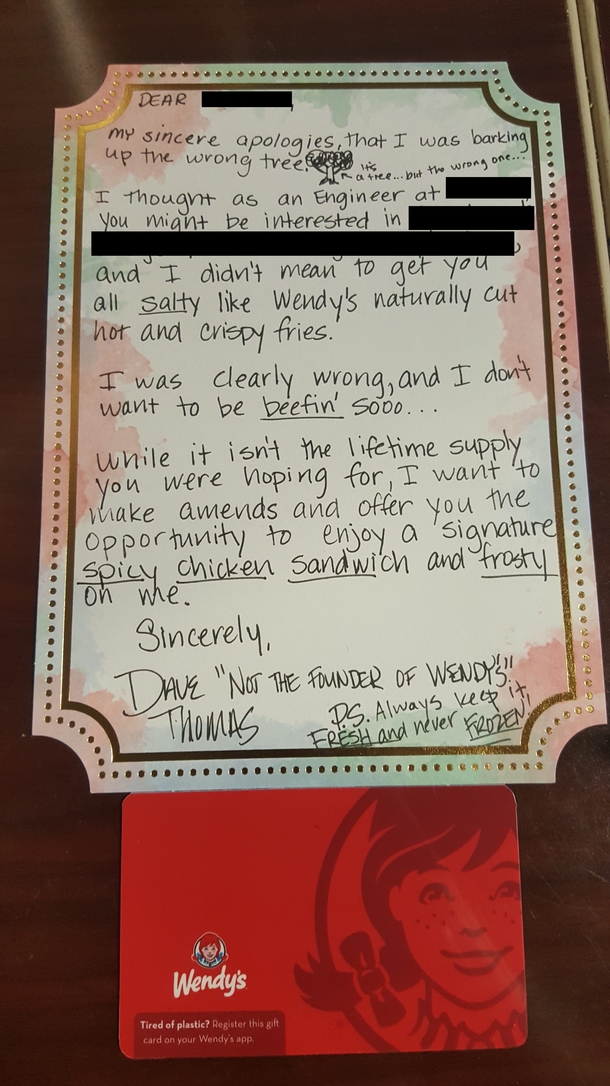 DEAR
my sincere apologies, that I was barking
up the wrong tree.
It's
a tree...but the wrong one...
I thought as an Engineer at
You might be interested in
and I didn't mean to get you
all salty like Wendy's naturally cut
hot and crispy fries.
I was clearly wrong, and I don't
want to be beefin' sooo...
While it isn't the lifetime supply
you were hoping for, I want to
make amends and offer you the
opportunity to enjoy a signature
spicy chicken sandwich and frosty
on me.
Sincerely,
DAVE "NOT THE FOUNDER OF WENDY'S"
THOMAS
P.S. Always keep it
FRESH and never FROZEN!
Wendy's
Tired of plastic? Register this gift
card on your Wendy's app.